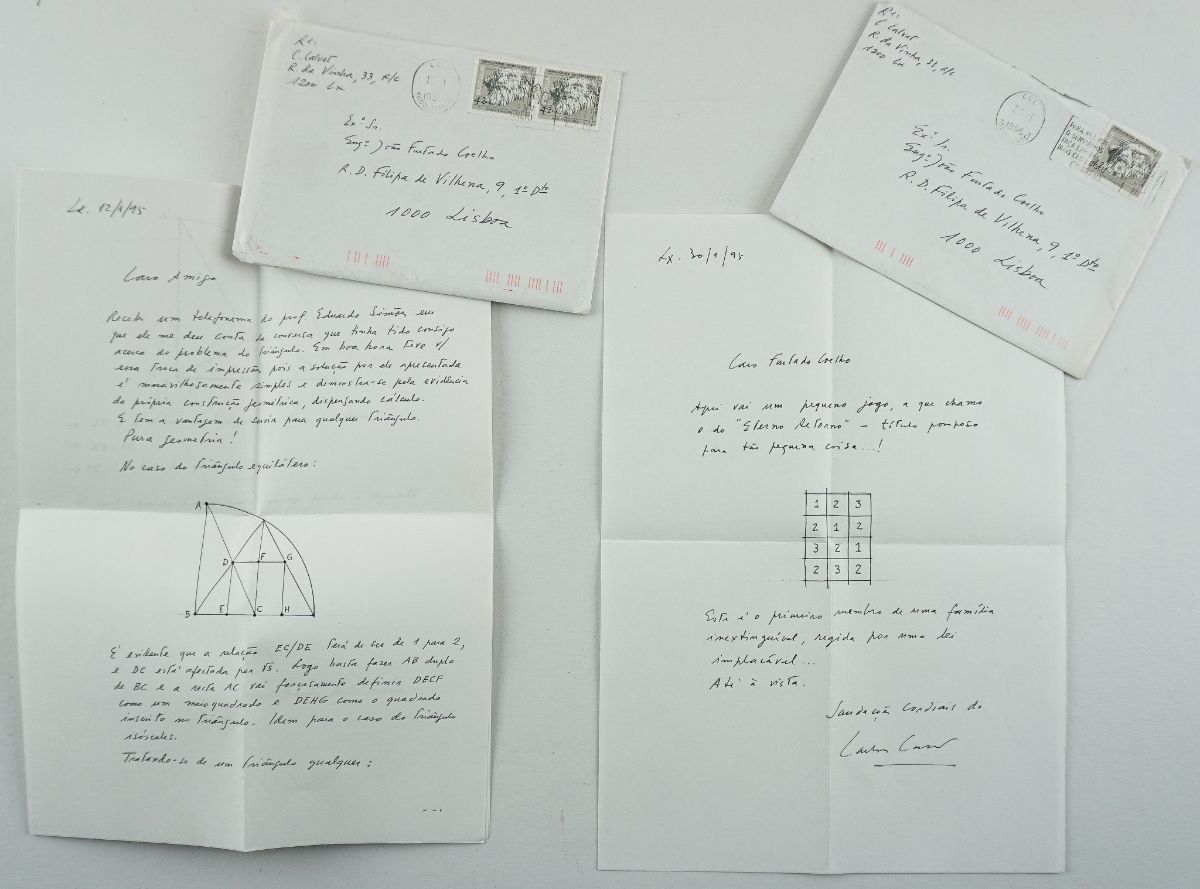 Re:
C. Calvet
R. da Vinha, 33, R/c
1200 Lx
Ex.º Sr.
Eng.º João Furtado Coelho
R. D. Filipa de Vilhena, 9, 1º Dto
1000 Lisboa
Re:
C. Calvet
R. da Vinha, 33, R/c
1200 Lx
Ex.º Sr.
Eng.º João Furtado Coelho
R. D. Filipa de Vilhena, 9, 1º Dto
1000 Lisboa
Lx. 12/1/95
Caro Amigo
Recebi um telefonema do prof. Eduardo Simões em
que ele me deu conta da conversa que tinha tido consigo
acerca do problema do triângulo. Em boa hora tive v/
essa troca de impressões pois a solução por si apresentada
é maravilhosamente simples e demonstra-se pela evidência
da própria construção geométrica, dispensando cálculo.
E tem a vantagem de servir para qualquer triângulo.
Pura geometria!
No caso do triângulo equilátero:
A
D F G
B E C H
É evidente que a relação EC/DE terá de ser de 1 para 2,
e DC está afectada por √5. Logo basta fazer AB duplo
de BC e a recta AC vai forçosamente definir DECF
como um meio quadrado e DEHG como o quadrado
inscrito no triângulo. Idem para o caso do triângulo
isósceles.
Tratando-se de um triângulo qualquer:
...
Lx. 30/1/95
Caro Furtado Coelho
Aqui vai um pequeno jogo, a que chamo
o do "Eterno Retorno" – título pomposo
para tão pequena coisa...!
1 2 3
2 1 2
3 2 1
2 3 2
Este é o primeiro membro de uma família
inextinguível, regida por uma lei
implacável...
Até à vista.
Saudação cordiais do